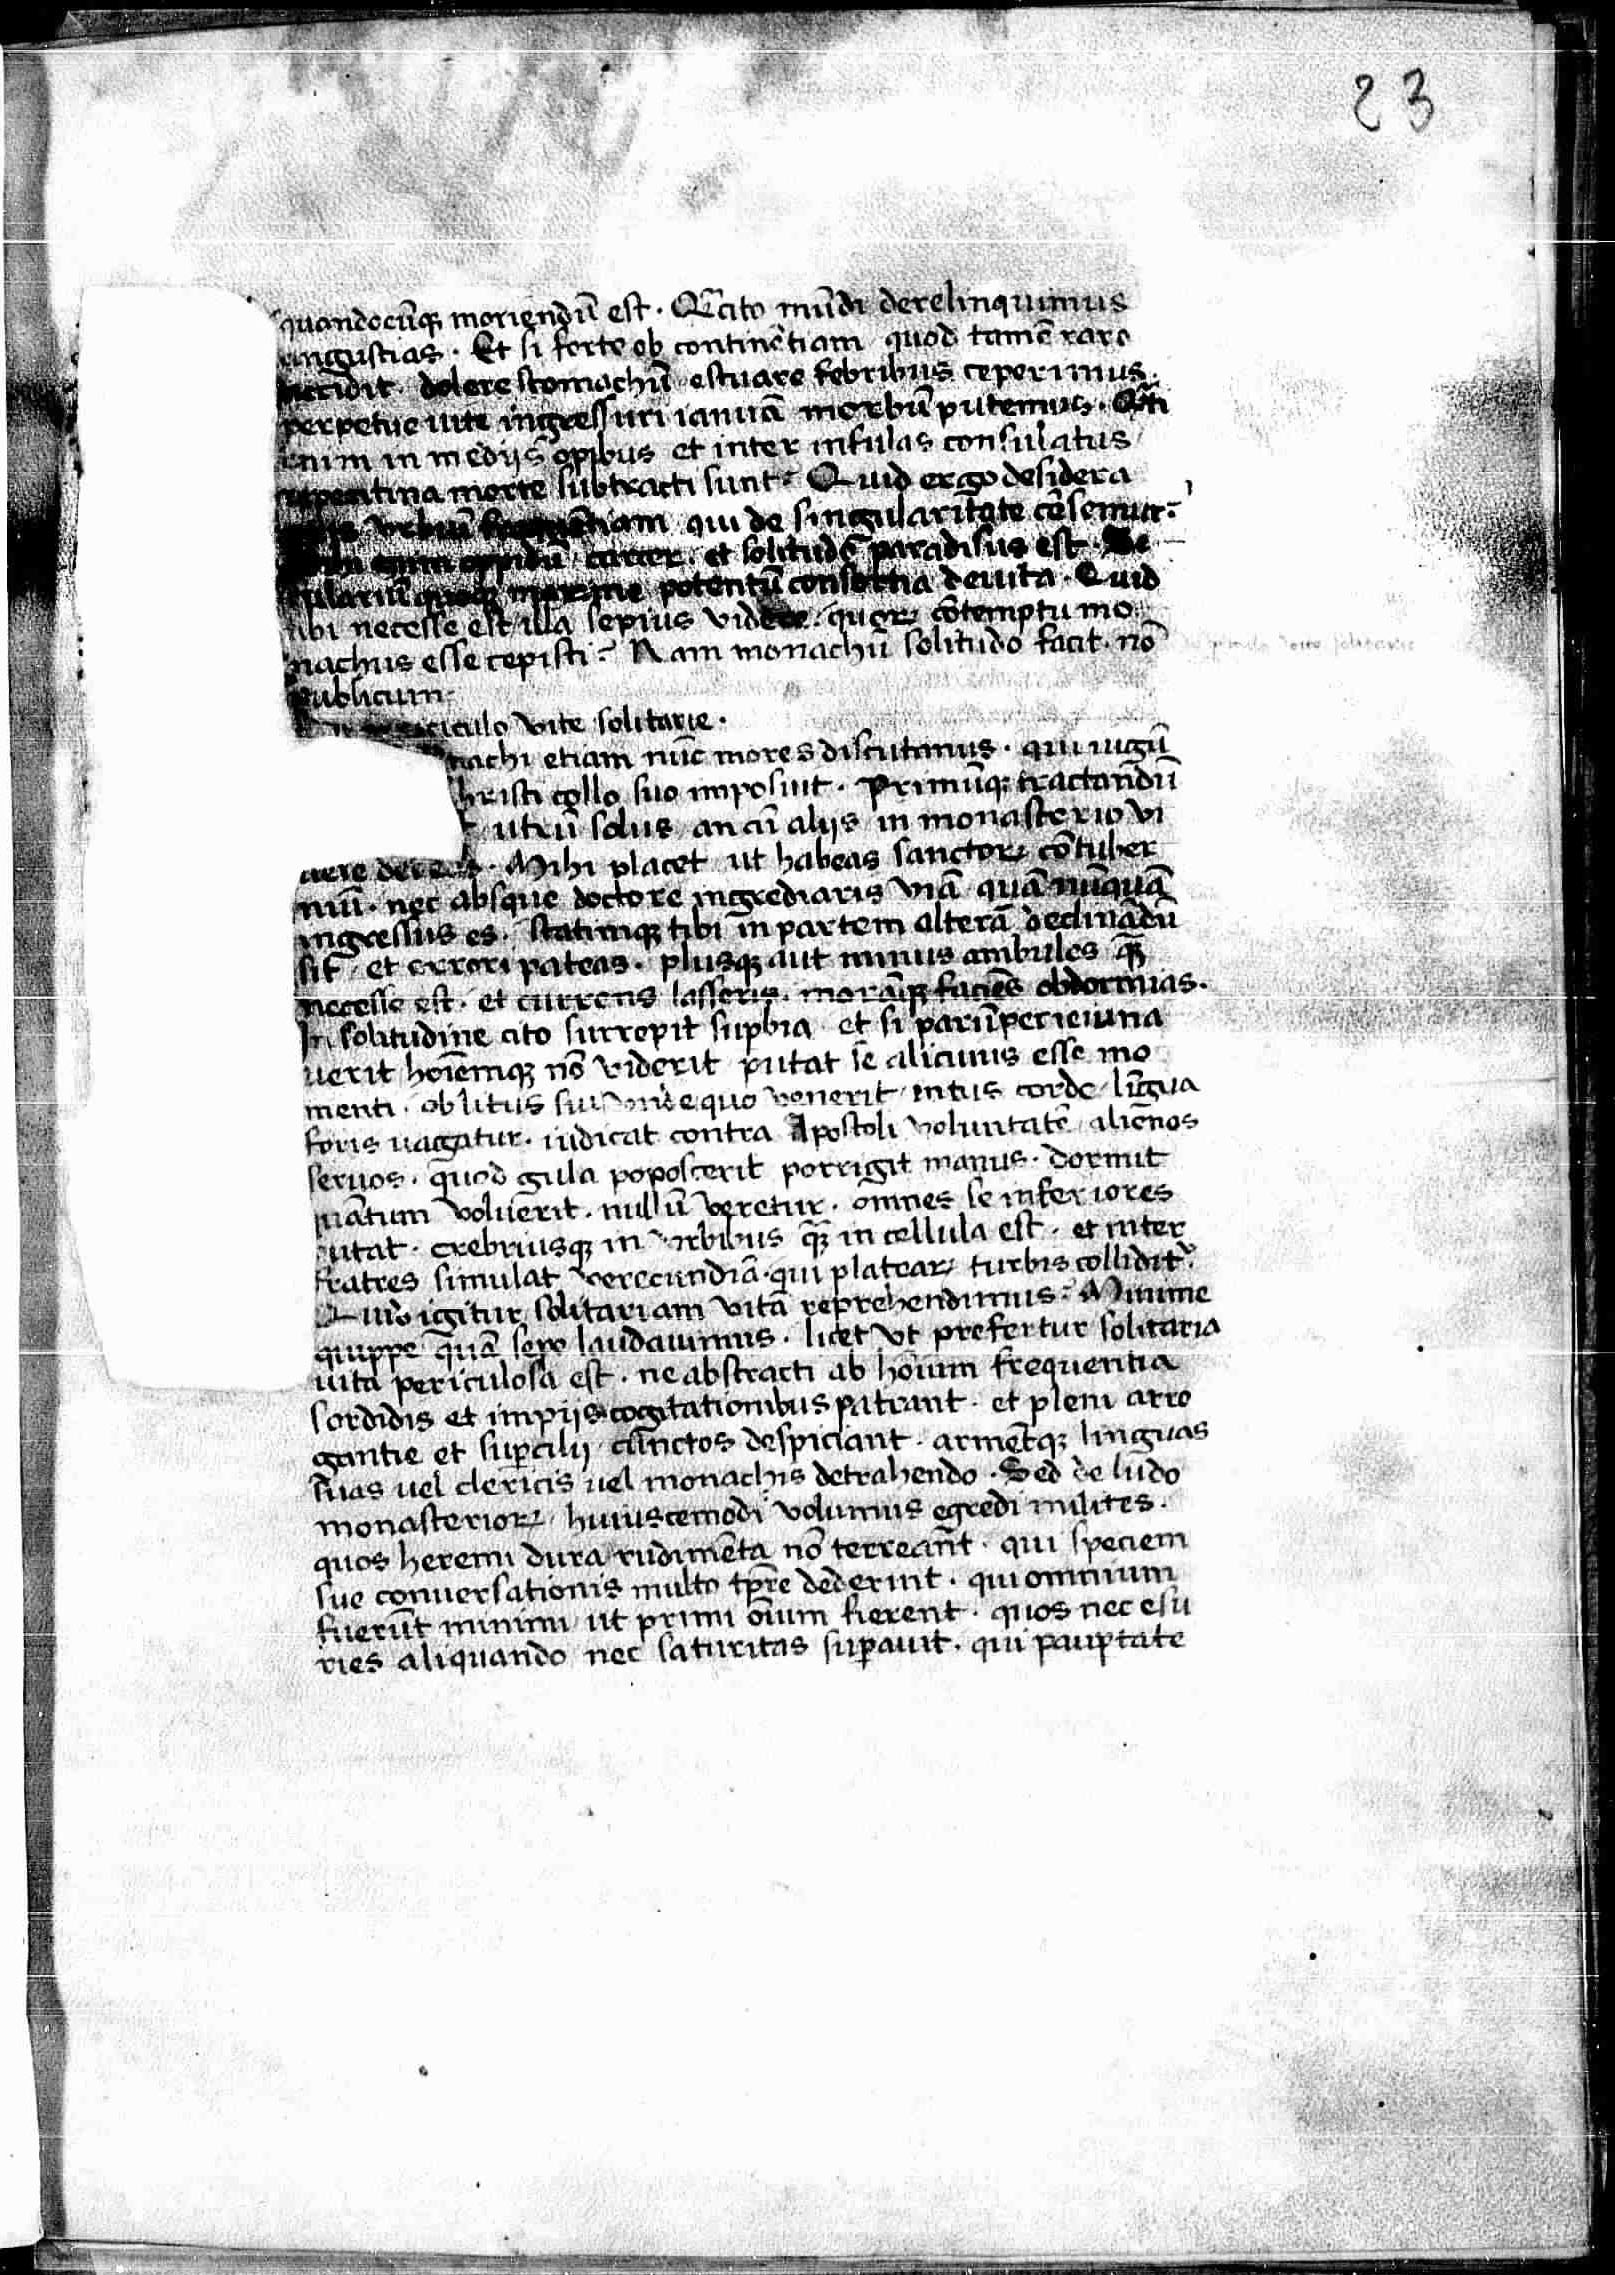 23
quandocūqꝫ moriendū est. Qͣ cito mūdi derelinquimus
angustias. Et si forte ob continētiam quod tamē raro
accidit. dolere stomachū estuare febribus ceperimus.
perpetue uite ingressuri ianuā morbū putemus. Qͣti
enim in medijs opibus et inter infulas consulatus
repentina morte subtracti sunt? Quid ergo desidera
urbiū frequētiam qui de singularitate cēsemur?
oppidū carcer. et solitudo paradisus est. Se
culariū quoqꝫ maxime potentū consortia deuita. Quid
tibi necesse est illa sepius videre. quoꝝ cōtemptu mo
nachus esse cepisti? Nam monachū solitudo facit. nō
publicum.
periculo vite solitarie.
nachi etiam nūc mores discutimus. qui iugū
hristi collo suo imposuit. Primūqꝫ tractandū
utrū solus an cū alijs in monasterio vi
uere debeas. Mihi placet ut habeas sanctoꝝ cōtuber
niū. nec absque doctore ingrediaris viā quā nūquā
ingressus es. statimqꝫ tibi in partem alterā declinādū
sit et errori pateas. plusqꝫ aut minus ambules qͣꝫ
necesse est. et currens lasseris. morāqꝫ faciēs obdormias.
In solitudine cito surrepit supbia et si parūper ieiuna
uerit hoiēmqꝫ nō viderit putat se alicuius esse mo
menti. oblitus sui vnde quo venerit intus corde lingua
foris uagatur. iudicat contra Apostoli voluntatē aliēnos
seruos. quod gula poposcerit porrigit manus. dormit
quātum voluerit. nullū veretur. omnes se inferiores
putat. crebriusqꝫ in vrbibus qͣꝫ in cellula est. et inter
fratres simulat verecundiā. qui plateaꝝ turbis colliditʳ.
Quid igitur solitariam vitā reprehendimus? Minime
quippe quā sepe laudauimus. licet vt prefertur solitaria
uita periculosa est. ne abstracti ab hoīum frequentia
sordidis et impijs cogitationibus pateant. et pleni arro
gantie et supcilij cūnctos despiciant. armētqꝫ linguas
suas uel clericis uel monachis detrahendo. Sed de ludo
monasterioꝝ huiuscemodi volumus egredi milites.
quos heremi dura rudimēta nō terreānt. qui speciem
sue conuersationis multo tp̄re dederint. qui omnium
fuerūt minimi ut primi oīum fierent. quos nec esu
ries aliquando nec saturitas supauit. qui pauptate